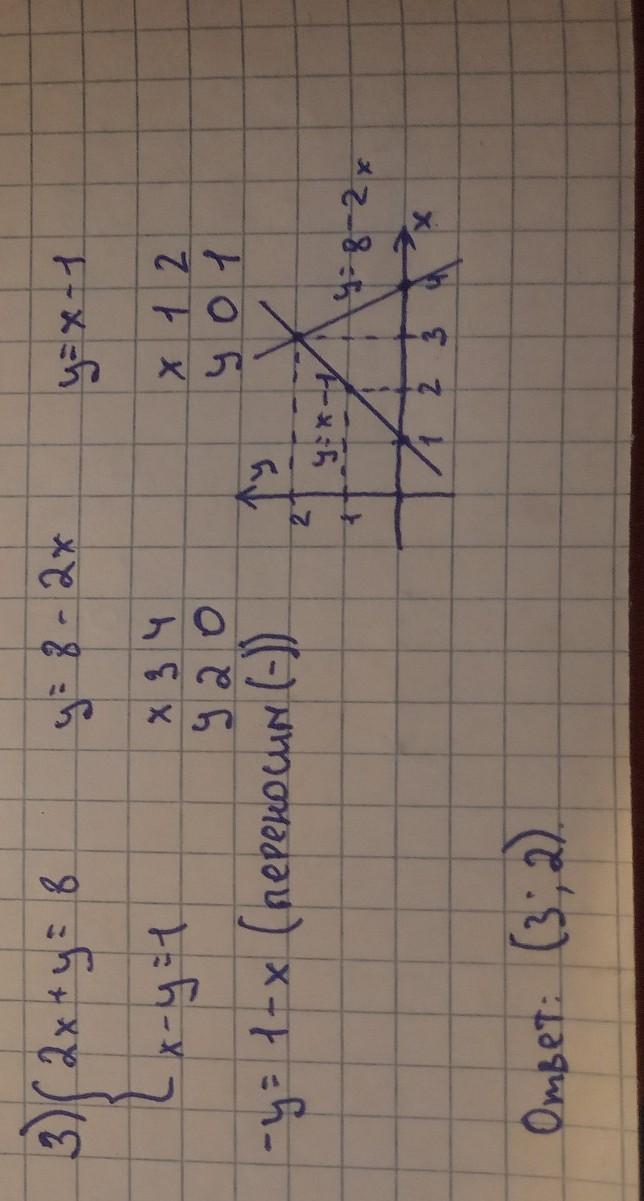 3) { 2x + y = 8    y = 8 - 2x    y = x - 1
x - y = 1    x 3 4    x 1 2
y 2 0    y 0 1
-y = 1 - x (переносим (-))
y
2
1
y = x - 1
y = 8 - 2x
1 2 3 4 x
Ответ: (3; 2).